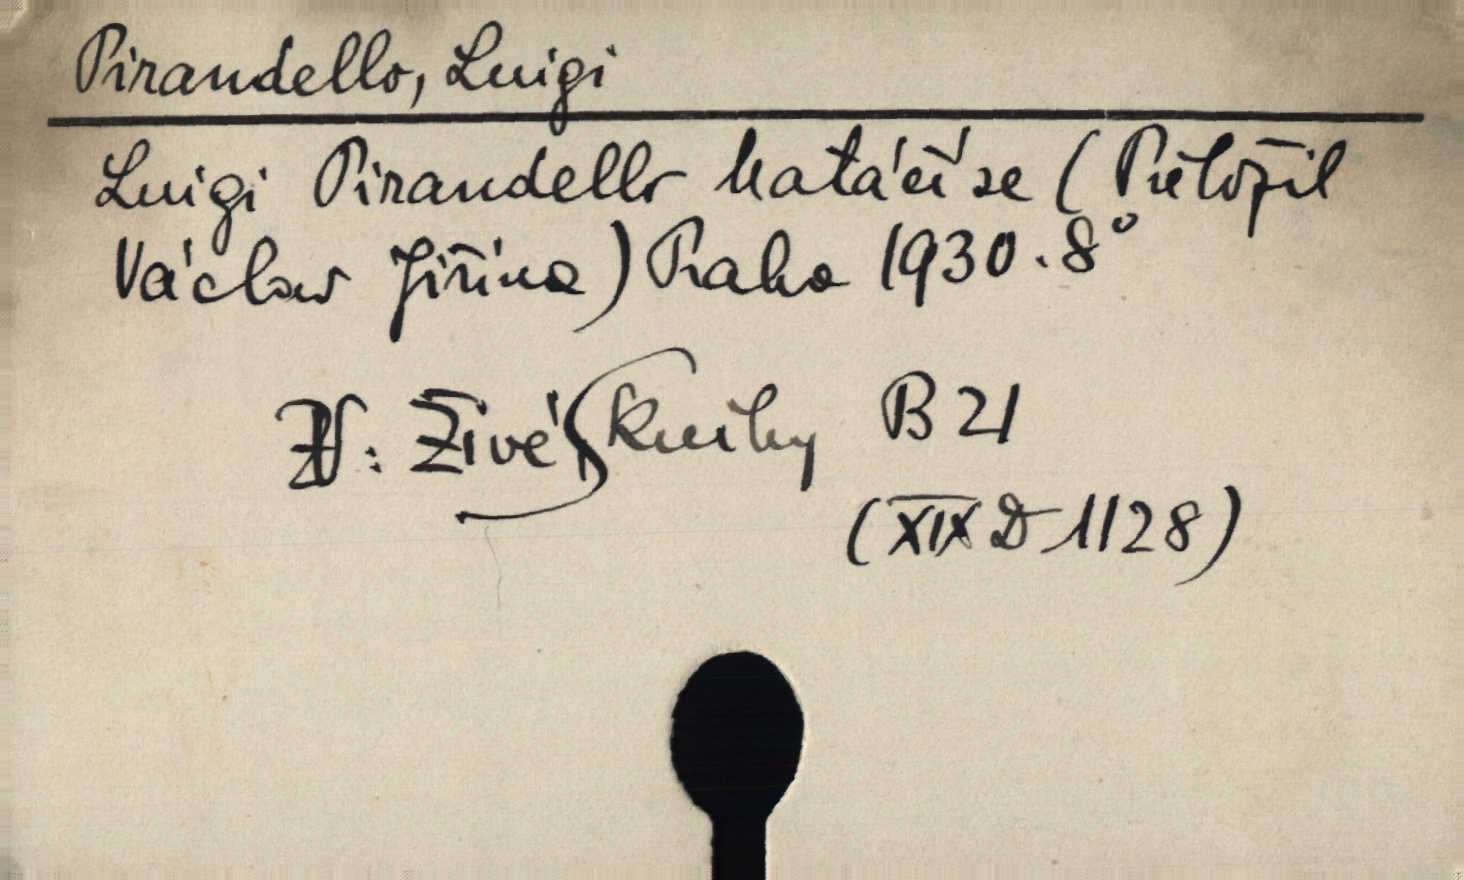 Pirandello, Luigi
Luigi Pirandello Natáčí se (Přeložil
Václav Jiřina) Praha 1930. 8°
Živé knihy B 21
(XIX D 1128)